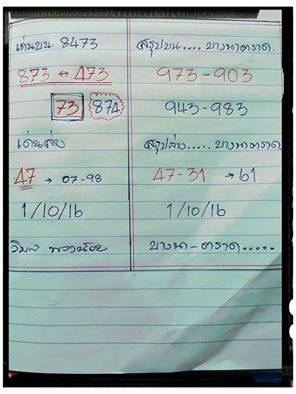 เด่นบน 8473
873 ↔ 473
73 874
เด่นล่าง
47 → 07-98
1/10/16
วิมล
สรุปบน.... บางนาตราด.
973-903
943-983
สรุปล่าง..... บางนาตราด
47-31 → 61
1/10/16
บางนา-ตราด.....